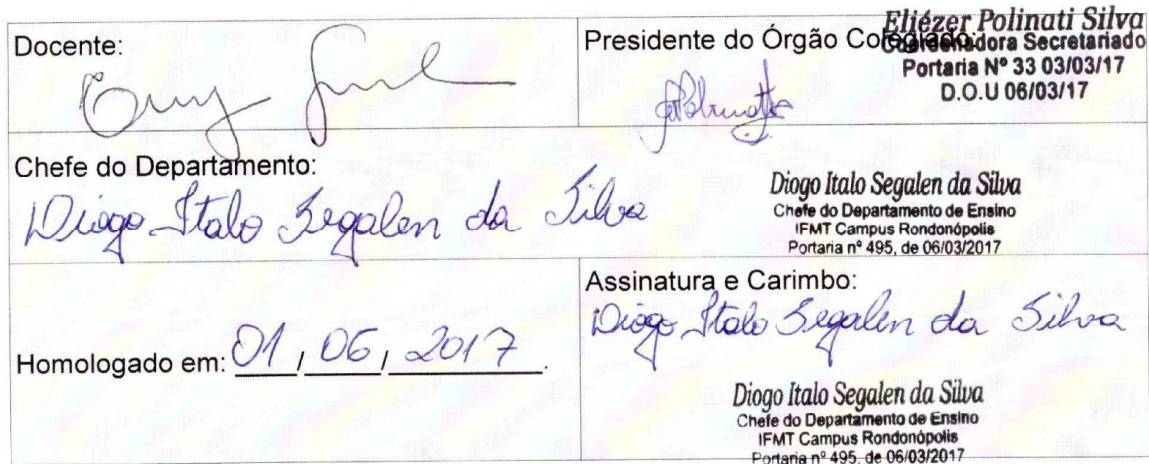 Docente:
Presidente do Órgão Colegiado:
Eliézer Polinati Silva
Coordenadora Secretariado
Portaria Nº 33 03/03/17
D.O.U 06/03/17
Chefe do Departamento:
Diogo Italo Segalen da Silva
Diogo Italo Segalen da Silva
Chefe do Departamento de Ensino
IFMT Campus Rondonópolis
Portaria nº 495, de 06/03/2017
Homologado em: 01 / 06 / 2017.
Assinatura e Carimbo:
Diogo Italo Segalen da Silva
Diogo Italo Segalen da Silva
Chefe do Departamento de Ensino
IFMT Campus Rondonópolis
Portaria nº 495, de 06/03/2017